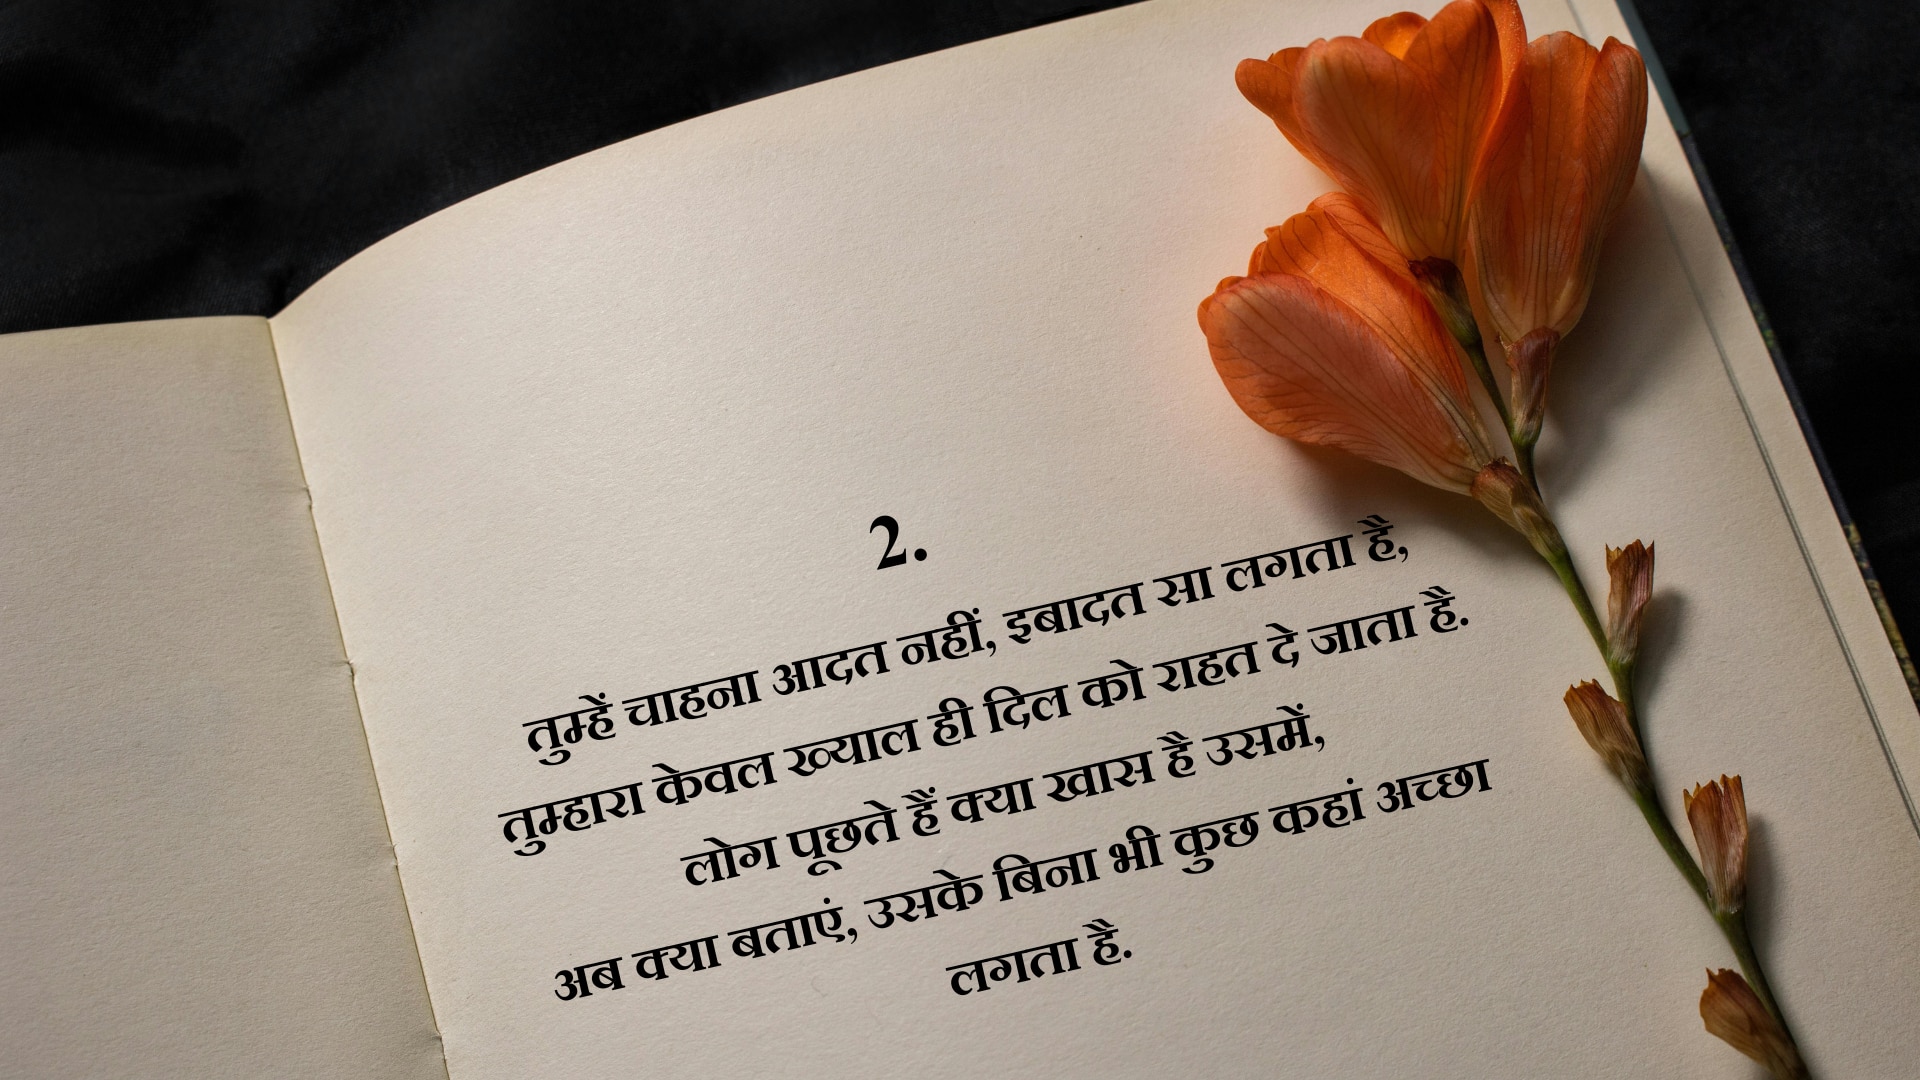 2.
तुम्हें चाहना आदत नहीं, इबादत सा लगता है,
तुम्हारा केवल ख्याल ही दिल को राहत दे जाता है.
लोग पूछते हैं क्या खास है उसमें,
अब क्या बताएं, उसके बिना भी कुछ कहां अच्छा
लगता है.